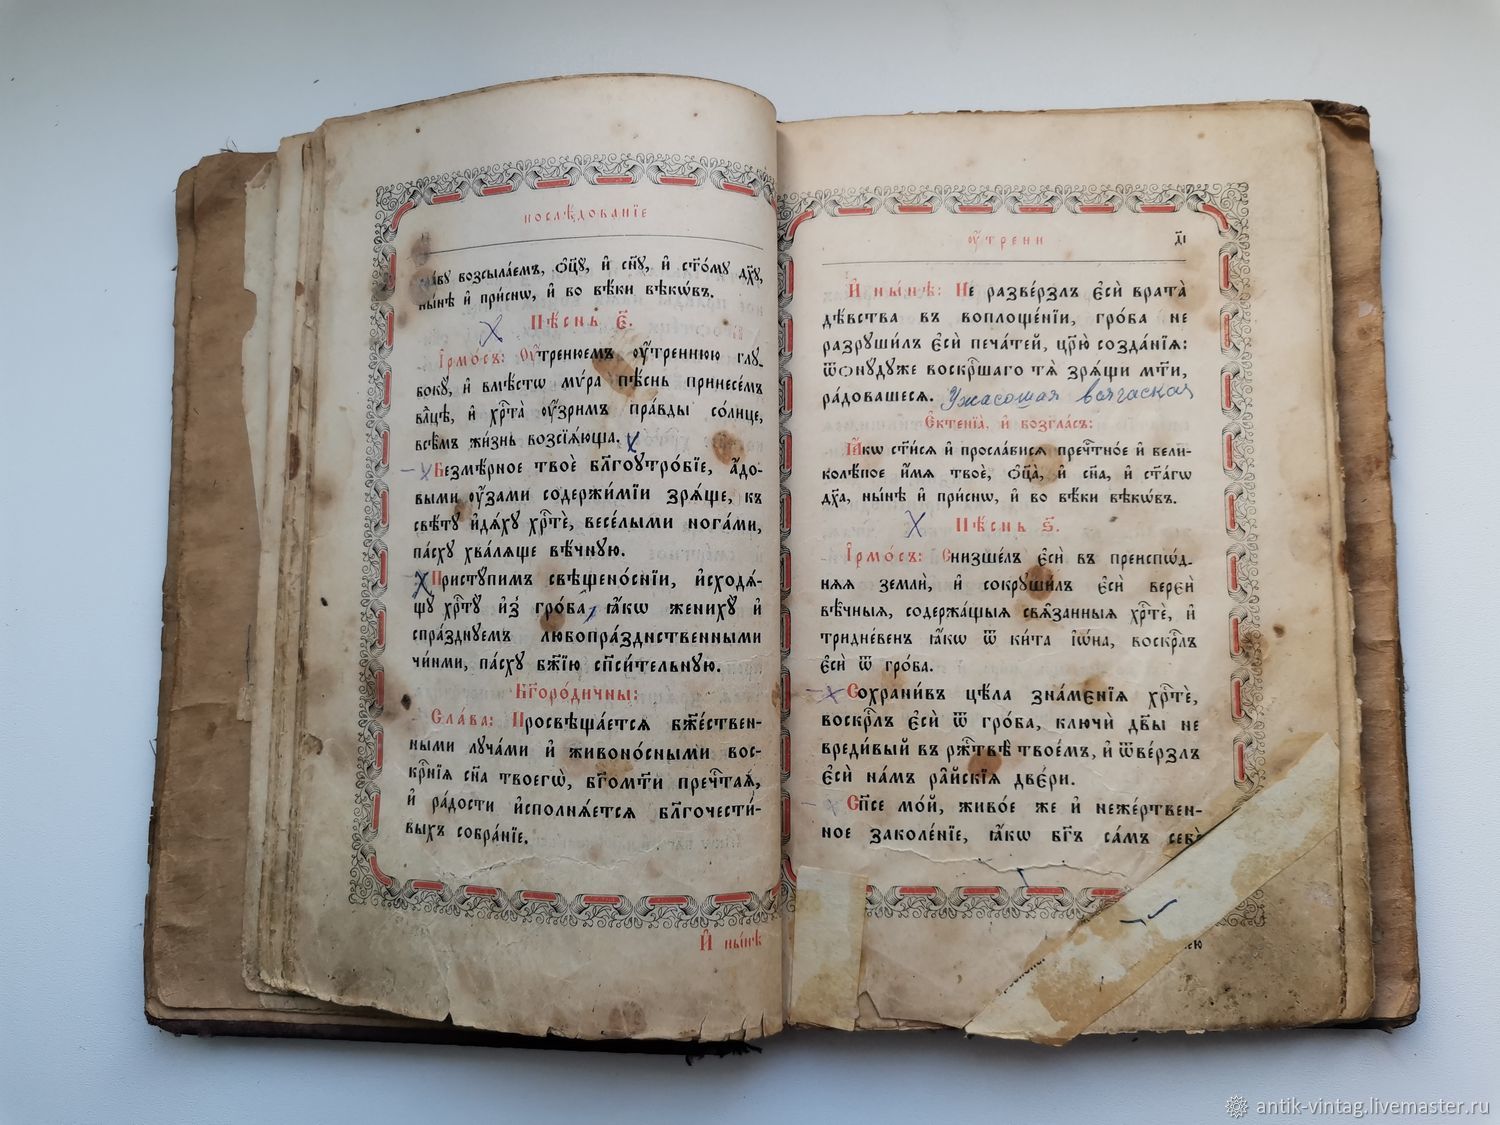 послѣ́дованїе
сла́вꙋ возсыла́емъ, ѻ҆ц҃ꙋ̀, и҆ сн҃ꙋ, и҆ ст҃о́мꙋ дх҃ꙋ,
ны́нѣ и҆ при́снѡ, и҆ во вѣ́ки вѣкѡ́въ.
Пѣ́снь є҃.
І҆рмо́съ: Оу҆́тренюемъ оу҆́треннюю глꙋ-
бокꙋ̀, и҆ вмѣ́стѡ мѵ́ра пѣ́снь принесе́мъ
вл҃цѣ, и҆ хрⷭ҇та̀ оу҆́зримъ пра́вды со́лнце,
всѣ̑мъ жи́знь возсїѧ́юща.
Безмѣ́рное твоѐ бл҃гоꙋтро́бїе, а҆́до-
выми оу҆́зами содержи́мїи зрѧ́ще, къ
свѣ́тꙋ и҆дѧ́хꙋ хрⷭ҇тѐ, весе́лыми нога́ми,
па́схꙋ хва́лѧще вѣ́чнꙋю.
Пристꙋ́пимъ свѣщено́снїи, и҆сходѧ́-
щꙋ хрⷭ҇тꙋ̀ и҆з̾ гро́ба, ꙗ҆́кѡ женихꙋ̀ и҆
спра́зднꙋемъ любопра́зднственными
чи́нми, па́схꙋ бж҃їю сп҃си́тельнꙋю.
Бг҃оро́дичны:
Сла́ва: Просвѣща́етсѧ бжⷭ҇е́ствен-
ными лꙋча́ми и҆ живоно́сными вос-
крⷭ҇нїѧ сн҃а твоегѡ̀, бг҃ома́ти пречⷭ҇таѧ,
и҆ ра́дости и҆сполнѧ́етсѧ бл҃гочести́-
выхъ собра́нїе.
И҆ ны́нѣ
оу҆́трени
д҃і
И҆ ны́нѣ: Не разве́рзлъ є҆сѝ врата̀
дѣ́вства въ воплоще́нїи, гро́ба не
разрꙋши́лъ є҆сѝ печа́тей, цр҃ю̀ созда́нїѧ:
ѿонꙋ́дꙋже воскрⷭ҇шаго тѧ̀ зрѧ́щи мт҃и,
ра́довашесѧ.
Є҆ктенїа̀, и҆ возгла́съ:
Ꙗ҆́кѡ ст҃и́сѧ и҆ просла́висѧ пречⷭ҇тно́е и҆ вели-
колѣ́пое и҆́мѧ твоѐ, ѻ҆ц҃а̀, и҆ сн҃а, и҆ ст҃а́гѡ
дх҃а, ны́нѣ и҆ при́снѡ, и҆ во вѣ́ки вѣкѡ́въ.
Пѣ́снь ѕ҃.
І҆рмо́съ: Снизше́лъ є҆сѝ въ преиспѡ́д-
нѧѧ землѝ, и҆ сокрꙋши́лъ є҆сѝ вереѝ
вѣ́чныѧ, содержа́щыѧ свѧ̑занныѧ хрⷭ҇тѐ, и҆
тридне́венъ ꙗ҆́кѡ ѿ ки́та і҆ѡ́на, воскрⷭ҇лъ
є҆сѝ ѿ гро́ба.
Сохрани́въ цѣ̑ла зна́мєнїѧ хрⷭ҇тѐ,
воскрⷭ҇лъ є҆сѝ ѿ гро́ба, ключѝ дв҃ы не
вреди́вый въ рж҃твѣ̀ твое́мъ, и҆ ѿве́рзлъ
є҆сѝ на́мъ ра̑йскїѧ две́ри.
Сп҃се мо́й, живо́е же и҆ неже́ртвен-
ное заколе́нїе, ꙗ҆́кѡ бг҃ъ са́мъ себѐ
antik-vintag.livemaster.ru